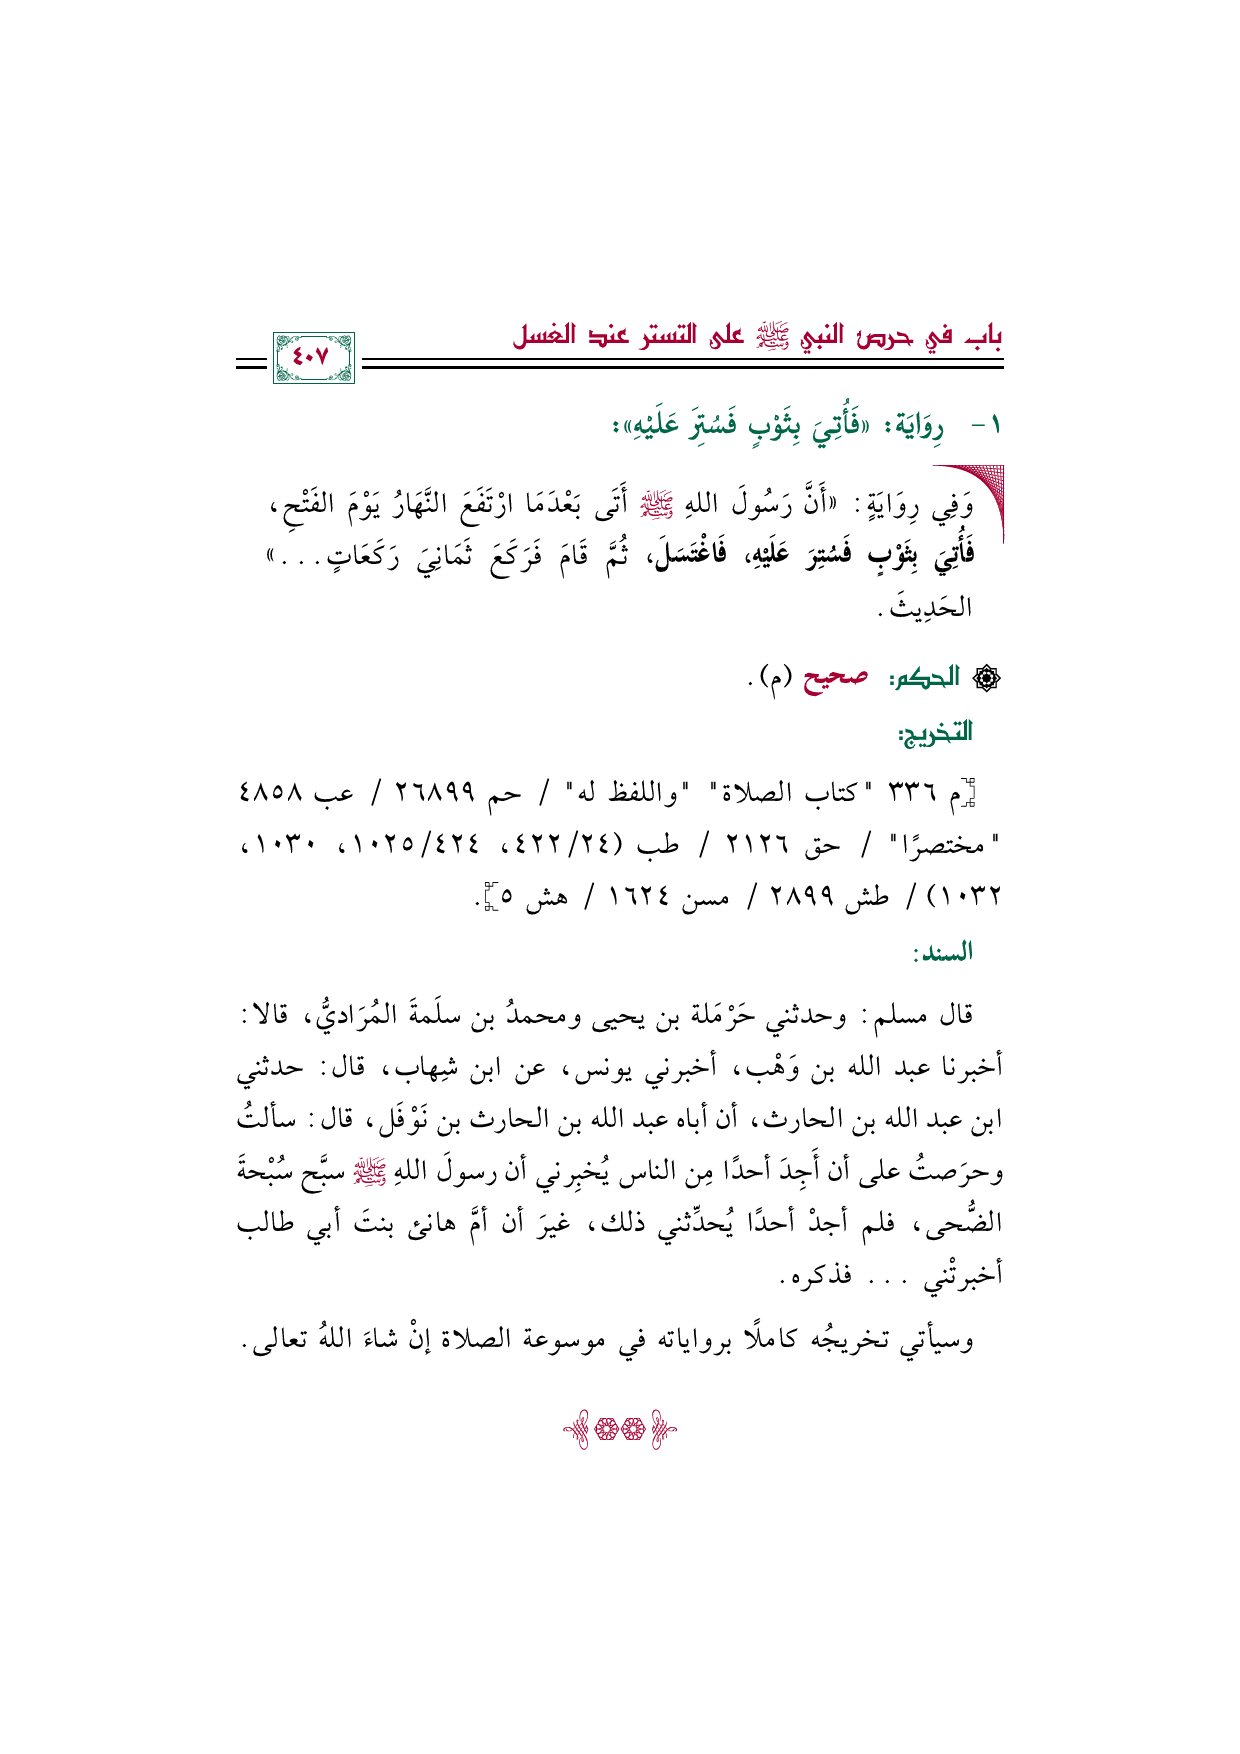 باب في حرص النبي ﷺ على التستر عند الغسل
٤٠٧
١- رِوَايَة: «فَأُتِيَ بِثَوْبٍ فَسُتِرَ عَلَيْهِ»:
وَفِي رِوَايَةٍ: «أَنَّ رَسُولَ اللهِ ﷺ أَتَى بَعْدَمَا ارْتَفَعَ النَّهَارُ يَوْمَ الفَتْحِ،
فَأُتِيَ بِثَوْبٍ فَسُتِرَ عَلَيْهِ، فَاغْتَسَلَ، ثُمَّ قَامَ فَرَكَعَ ثَمَانِيَ رَكَعَاتٍ...»
الحَدِيثَ.
الحكم: صحيح (م).
التخريج:
[م ٣٣٦ "كتاب الصلاة" "واللفظ له" / حم ٢٦٨٩٩ / عب ٤٨٥٨
"مختصرًا" / حق ٢١٢٦ / طب (٤٢٢/٢٤، ١٠٢٥/٤٢٤، ١٠٣٠،
١٠٣٢) / طش ٢٨٩٩ / مسن ١٦٢٤ / هش ٥].
السند:
قال مسلم: وحدثني حَرْمَلة بن يحيى ومحمدُ بن سلَمةَ المُرَاديُّ، قالا:
أخبرنا عبد الله بن وَهْب، أخبرني يونس، عن ابن شِهاب، قال: حدثني
ابن عبد الله بن الحارث، أن أباه عبد الله بن الحارث بن نَوْفَل، قال: سألتُ
وحرَصتُ على أن أَجِدَ أحدًا مِن الناس يُخبِرني أن رسولَ اللهِ ﷺ سبَّح سُبْحةَ
الضُّحى، فلم أجدْ أحدًا يُحدِّثني ذلك، غيرَ أن أمَّ هانئ بنتَ أبي طالب
أخبرتْني ... فذكره.
وسيأتي تخريجُه كاملًا برواياته في موسوعة الصلاة إنْ شاءَ اللهُ تعالى.